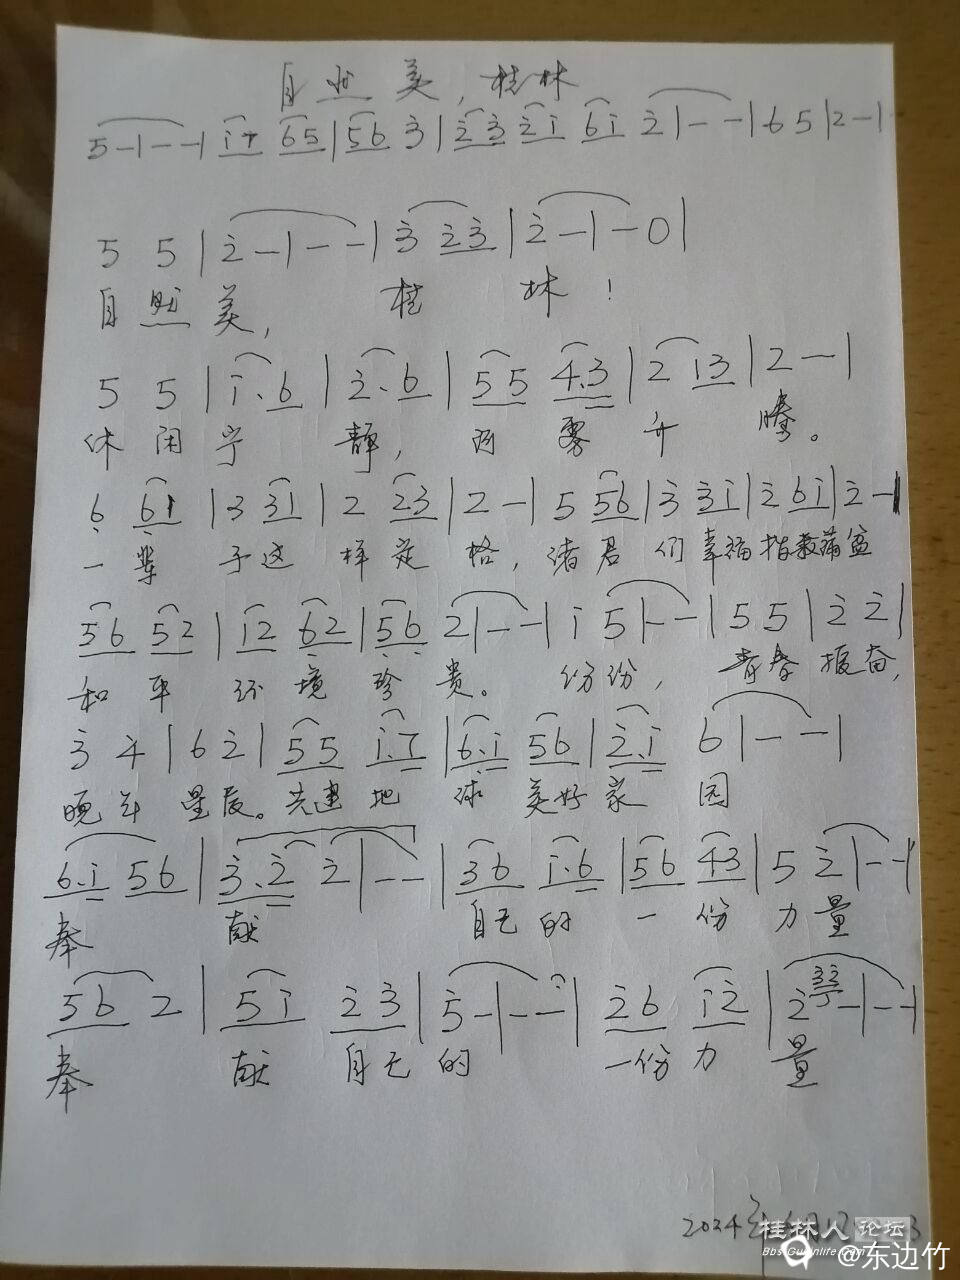 自然美,桂林
5-|--|i7 65|56 3|23 2i 6i 2|--|65|2-|
5 5|2-|--|3 23|2-|-0|
自然美, 桂 林!
5 5|i.6|2.6|55 4.3|2 i3|2-|
休闲宁 静, 雨雾升 腾。
6 61|3 31|2 23|2-|5 56|3 3i|2 6i|2-
一辈 子这 样定 格, 诸君 们幸福指数满盆
56 52|i2 62|56 2|--|i 5|--|55|22|
和 平 环 境 珍 贵。 份份, 青春报奋,
3 4|6 2|55 i.7|6.i 56|2.i 6|--|
晚年 星辰。共建 地 球 美好家 园
6.i 56|3.2 2|--|36 i.6|56 43|5 2|--|
奉 献 自己的 一 份 力量
56 2|5i 23|5-|--|26 i2|2-|--|
奉 献 自己 的 一份 力 量
2024年
桂林人论坛
@东边竹